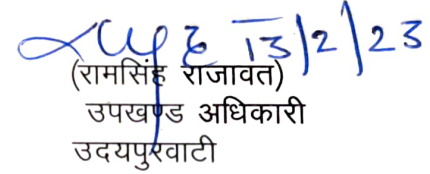 13/2/23
(रामसिंह राजावत)
उपखण्ड अधिकारी
उदयपुरवाटी